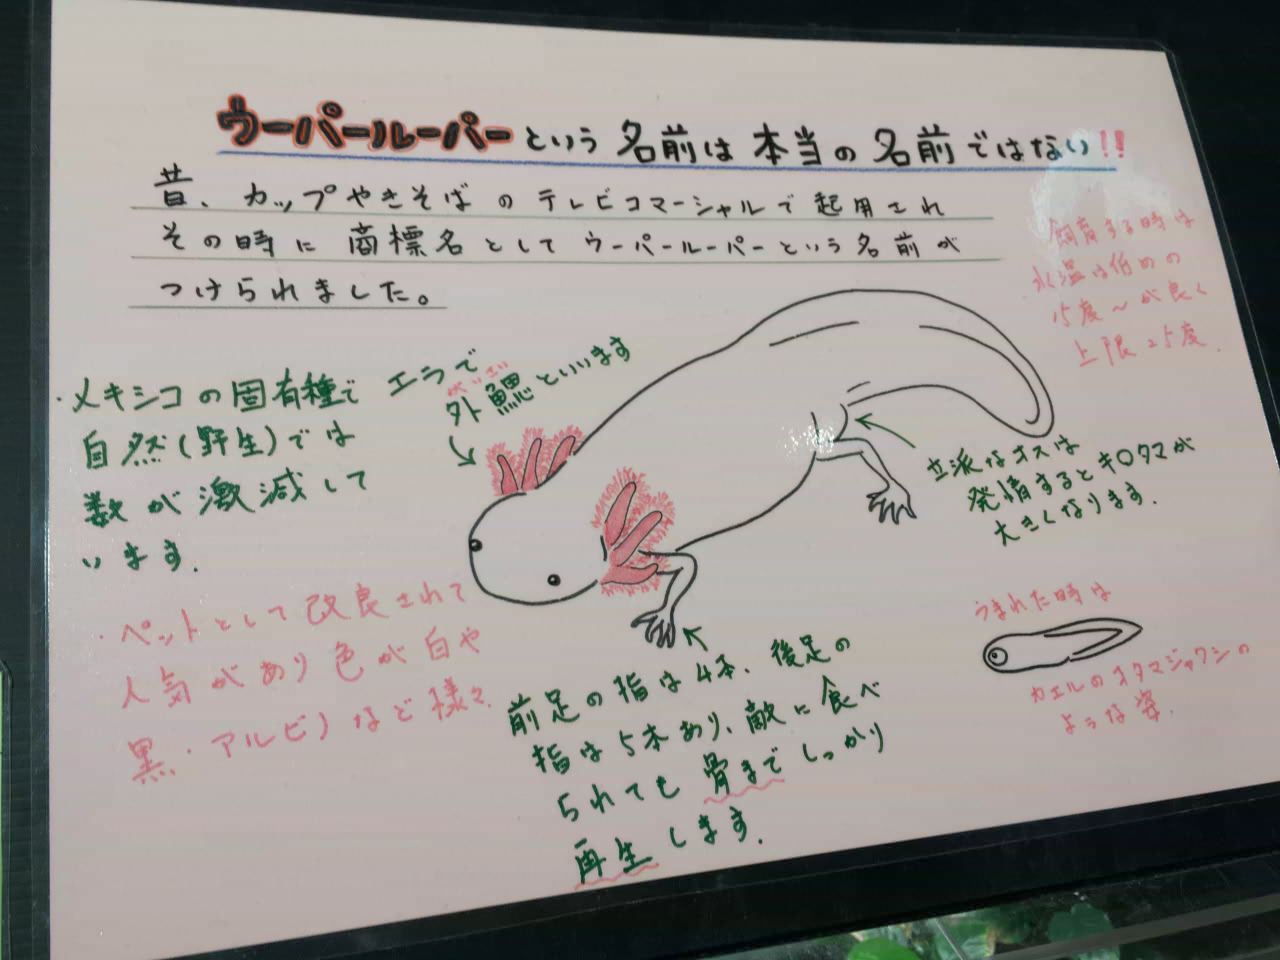 ウーパールーパーという名前は本当の名前ではない!!
昔、カップやきそばのテレビコマーシャルで起用され
その時に商標名としてウーパールーパーという名前が
つけられました。
飼育する時は
水温は低めの
15度～が良く
上限25度.
・メキシコの固有種で
自然(野生)では
数が激減して
います.
エラで
がいさい
外鰓といいます
立派なオスは
発情するとキ〇タマが
大きくなります.
・ペットとして改良されて
人気があり色が白や
黒・アルビノなど様々.
前足の指は4本、後足の
指は5本あり、敵に食べ
られても骨までしっかり
再生します.
うまれた時は
カエルのオタマジャクシの
ような姿.